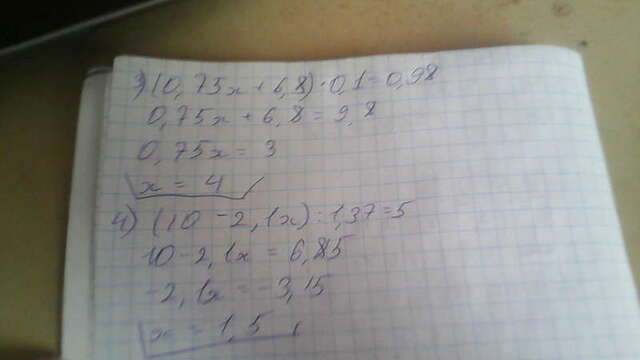 3) (0,75x + 6,8) · 0,1 = 0,98
0,75x + 6,8 = 9,8
0,75x = 3
x = 4
4) (10 - 2,1x) : 1,37 = 5
10 - 2,1x = 6,85
-2,1x = -3,15
x = 1,5